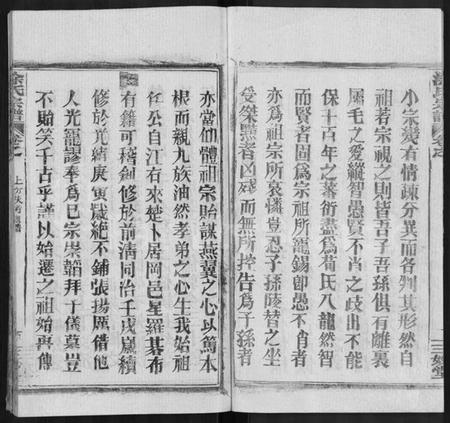 小宗幾有情疎分異而各判其形然自
祖若宗視之則皆吾子吾孫俱有離裏
屬毛之愛縱智愚賢不肖之歧出不能
保千百年之蕃衍盡為荀氏八龍然智
而賢者固為宗祖所寵錫即愚不肖者
亦為祖宗所哀憐豈忍子孫陵替之坐
受桀黠者凶殘而無所控告為子孫者
亦當仰體祖宗貽謀燕翼之心以篤本
根而親九族油然孝弟之心生我始祖
公自江右來楚卜居岡邑星羅棊布
有籍可稽創修於前清同治壬戌歲續
修於光緒庚寅歲絕不鋪張揚厲借他
人光寵謬奉為已宗崇韜拜子儀墓豈
不貽笑千古乎謹以始遷之祖始再傳
涂氏宗譜
卷之